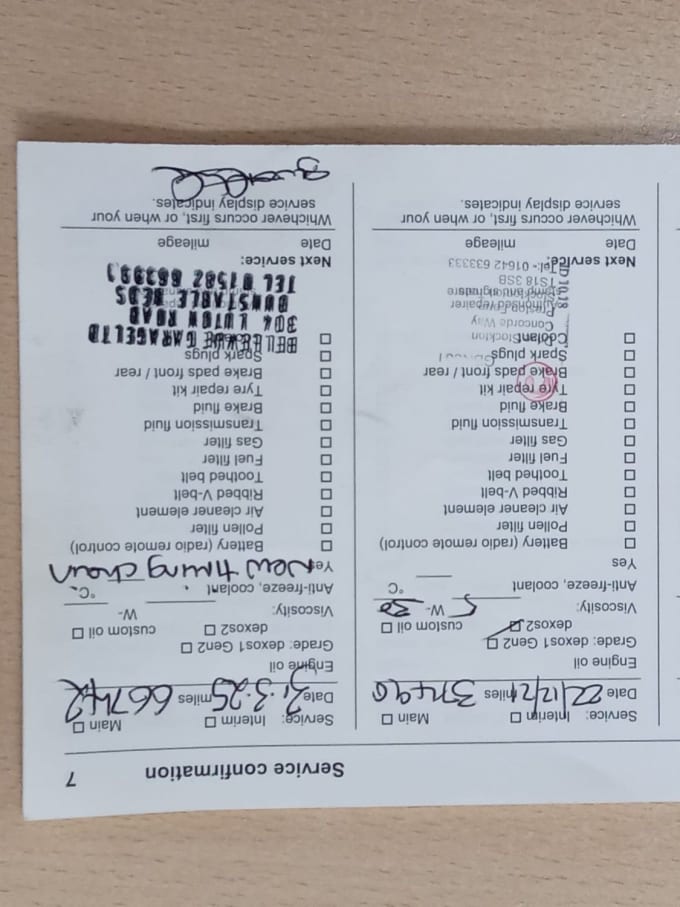 Service confirmation 7
Service: Interim Main
Date 22/12/21 miles 37490
Engine oil
Grade: dexos1 Gen2
dexos2 custom oil
Viscosity: 5 W- 30
Anti-freeze, coolant °C
Yes
Battery (radio remote control)
Pollen filter
Air cleaner element
Ribbed V-belt
Toothed belt
Fuel filter
Gas filter
Transmission fluid
Brake fluid
Tyre repair kit
Brake pads front / rear
Spark plugs
Coolant
Stockton
Concorde Way
Preston Farm
Authorised repairer
stamp and signature
TS18 3SB
Tel:- 01642 633333
Next service:
Date mileage
Whichever occurs first, or when your
service display indicates.
Service: Interim Main
Date 3.3.25 miles 66742
Engine oil
Grade: dexos1 Gen2
dexos2 custom oil
Viscosity: W-
Anti-freeze, coolant °C
Yes New timing chain
Battery (radio remote control)
Pollen filter
Air cleaner element
Ribbed V-belt
Toothed belt
Fuel filter
Gas filter
Transmission fluid
Brake fluid
Tyre repair kit
Brake pads front / rear
Spark plugs
BELLEVUE GARAGE LTD
304 LUTON ROAD
DUNSTABLE BEDS
TEL 01582 663991
Next service:
Date mileage
Whichever occurs first, or when your
service display indicates.